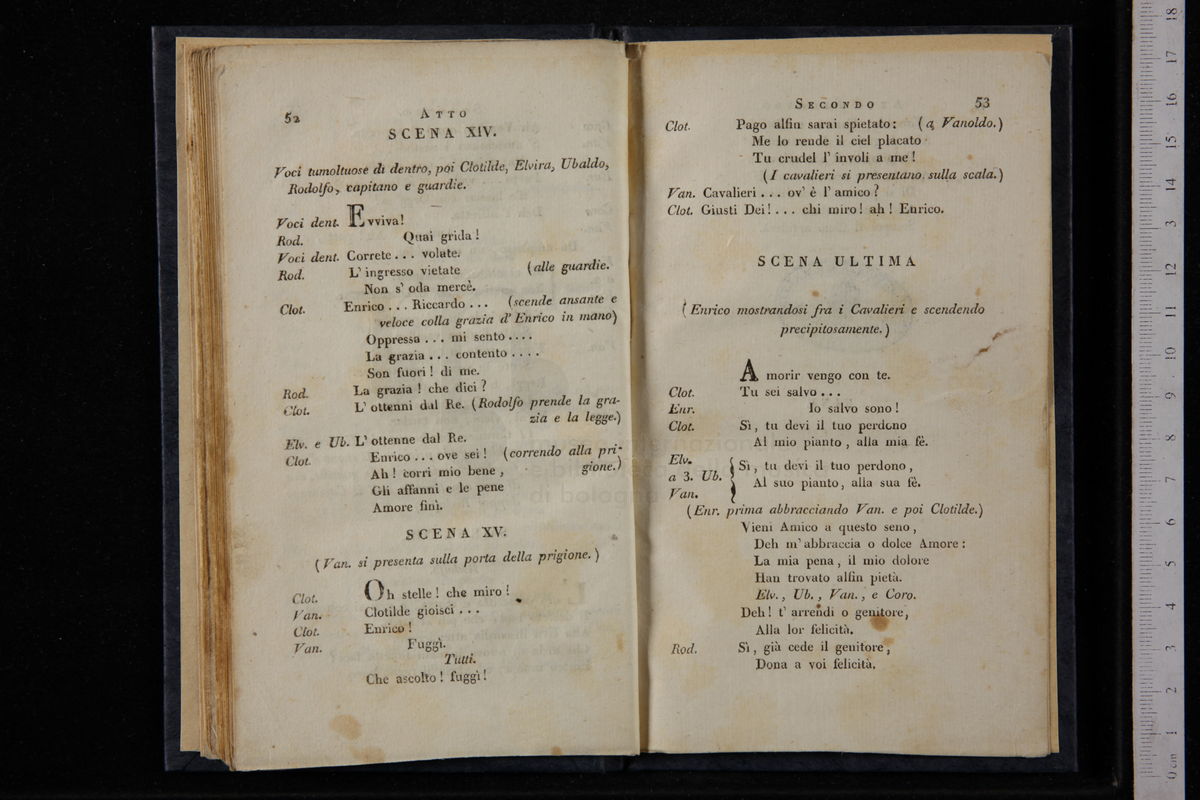 52
ATTO
SCENA XIV.
Voci tumoltuose di dentro, poi Clotilde, Elvira, Ubaldo,
Rodolfo, capitano e guardie.
Voci dent. Evviva!
Rod. Quai grida!
Voci dent. Correte... volate.
Rod. L' ingresso vietate (alle guardie.
Non s' oda mercè.
Clot. Enrico... Riccardo... (scende ansante e
veloce colla grazia d' Enrico in mano)
Oppressa... mi sento....
La grazia... contento....
Son fuori! di me.
Rod. La grazia! che dici?
Clot. L' ottenni dal Re. (Rodolfo prende la gra-
zia e la legge.)
Elv. e Ub. L' ottenne dal Re.
Clot. Enrico... ove sei! (correndo alla pri-
Ah! corri mio bene, gione.)
Gli affanni e le pene
Amore finì.
SCENA XV.
(Van. si presenta sulla porta della prigione.)
Clot. Oh stelle! che miro!
Van. Clotilde gioisci...
Clot. Enrico!
Van. Fuggì.
Tutti.
Che ascolto! fuggì!
SECONDO 53
Clot. Pago alfin sarai spietato: (a Vanoldo.)
Me lo rende il ciel placato
Tu crudel l' involi a me!
(I cavalieri si presentano sulla scala.)
Van. Cavalieri... ov' è l' amico?
Clot. Giusti Dei!... chi miro! ah! Enrico.
SCENA ULTIMA
(Enrico mostrandosi fra i Cavalieri e scendendo
precipitosamente.)
A morir vengo con te.
Clot. Tu sei salvo...
Enr. Io salvo sono!
Clot. Sì, tu devi il tuo perdono
Al mio pianto, alla mia fè.
Elv.
a 3. Ub. { Sì, tu devi il tuo perdono,
Al suo pianto, alla sua fè.
Van.
(Enr. prima abbracciando Van. e poi Clotilde.)
Vieni Amico a questo seno,
Deh m' abbraccia o dolce Amore:
La mia pena, il mio dolore
Han trovato alfin pietà.
Elv., Ub., Van., e Coro.
Deh! t' arrendi o genitore,
Alla lor felicità.
Rod. Sì, già cede il genitore,
Dona a voi felicità.
di bologna
0 cm 1 2 3 4 5 6 7 8 9 10 11 12 13 14 15 16 17 18